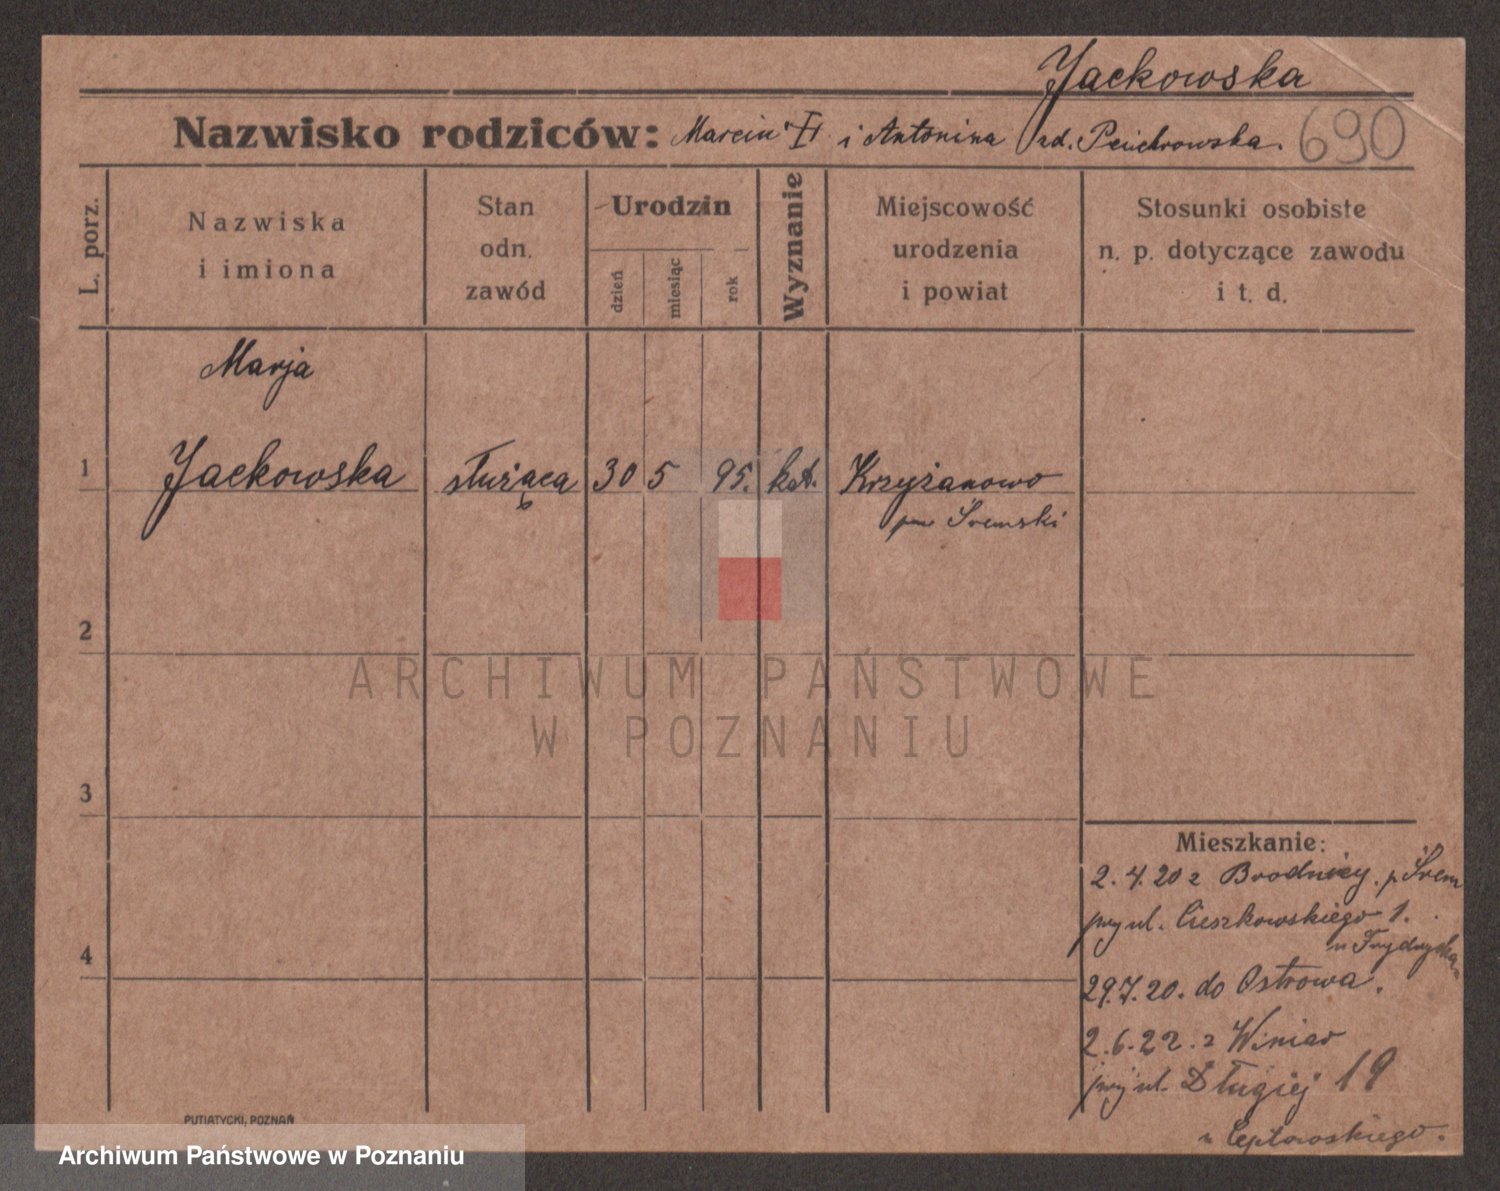 Jackowska
Nazwisko rodziców: Marcin i Antonina rd. 690
L. porz.
Nazwiska
i imiona
Stan
odn.
zawód
Urodzin
dzień
miesiąc
rok
Wyznanie
Miejscowość
urodzenia
i powiat
Stosunki osobiste
n. p. dotyczące zawodu
i t. d.
Marja
1 Jackowska służąca 30 5 95. kat. Krzyżanowo
pow Śremski
2
3
4
Mieszkanie:
2.4.20 z Brodnicy. p. Śrem
przy ul. Cieszkowskiego 1.
u
29.7.20. do Ostrowa.
2.6.22. z Winiar
przy ul. Długiej 19
u
PUTIATYCKI, POZNAŃ
ARCHIWUM PAŃSTWOWE
W POZNANIU
Archiwum Państwowe w Poznaniu